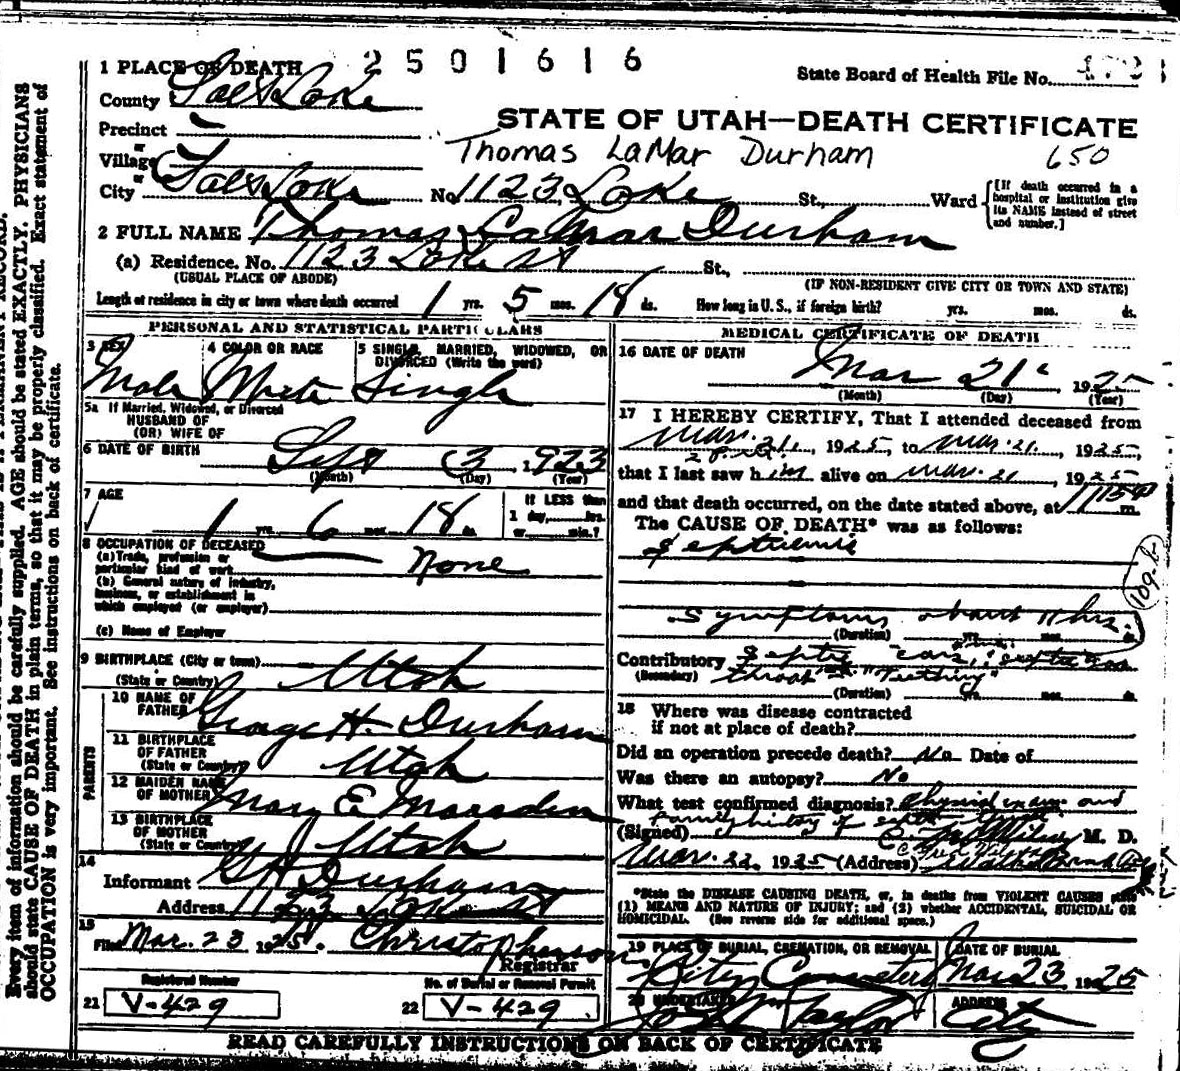 2501616
1 PLACE OF DEATH
State Board of Health File No.
County Salt Lake
STATE OF UTAH—DEATH CERTIFICATE
Precinct
Thomas LaMar Durham 650
or
Village
or
City Salt Lake No. 1123 Lake St., Ward
[If death occurred in a
hospital or institution give
its NAME instead of street
and number.]
2 FULL NAME Thomas LaMar Durham
(a) Residence. No. 1123 Lake St St.,
(USUAL PLACE OF ABODE)
(IF NON-RESIDENT GIVE CITY OR TOWN AND STATE)
Length of residence in city or town where death occurred 1 yrs. 5 mos. 18 ds. How long in U.S., if foreign birth? yrs. mos. ds.
PERSONAL AND STATISTICAL PARTICULARS
3 SEX
4 COLOR OR RACE
5 SINGLE, MARRIED, WIDOWED, OR
DIVORCED (Write the word)
Male White Single
5a If Married, Widowed, or Divorced
HUSBAND OF
(OR) WIFE OF
6 DATE OF BIRTH
Sept 3, 1923
(Month) (Day) (Year)
7 AGE
1 yrs. 6 mos. 18 ds.
If LESS than
1 day, hrs.
or min.?
8 OCCUPATION OF DECEASED
(a) Trade, profession or
particular kind of work
None
(b) General nature of industry,
business, or establishment in
which employed (or employer)
(c) Name of Employer
9 BIRTHPLACE (City or town)
(State or Country) Utah
PARENTS
10 NAME OF
FATHER George H. Durham
11 BIRTHPLACE
OF FATHER
(State or Country) Utah
12 MAIDEN NAME
OF MOTHER Mary E Marsden
13 BIRTHPLACE
OF MOTHER
(State or Country) Utah
14
Informant G H Durham
Address 1123 Lake St
15
Filed Mar. 23 1925. Christopherson
Registrar
Registered Number
No. of Burial or Removal Permit
21 V-429
22 V-429
MEDICAL CERTIFICATE OF DEATH
16 DATE OF DEATH
Mar 21 1925
(Month) (Day) (Year)
17 I HEREBY CERTIFY, That I attended deceased from
Mar. 21, 1925, to Mar. 21, 1925,
that I last saw him alive on Mar. 21, 1925
and that death occurred, on the date stated above, at 1115P m.
The CAUSE OF DEATH* was as follows:
Septicemia
109-b
symptoms about 11 hrs.
(Duration) yrs. mos. ds.
Contributory Septic
(Secondary) throat "Teething"
(Duration) yrs. mos. ds.
18 Where was disease contracted
if not at place of death?
Did an operation precede death? No Date of
Was there an autopsy? No
What test confirmed diagnosis? Physical exam and
family history of
(Signed) M. D.
Mar. 22, 1925 (Address)
*State the DISEASE CAUSING DEATH, or, in deaths from VIOLENT CAUSES state
(1) MEANS AND NATURE OF INJURY; and (2) whether ACCIDENTAL, SUICIDAL OR
HOMICIDAL. (See reverse side for additional space.)
19 PLACE OF BURIAL, CREMATION, OR REMOVAL
DATE OF BURIAL
City Cemetery Mar 23, 1925
20 UNDERTAKER
ADDRESS
Taylor City
READ CAREFULLY INSTRUCTIONS ON BACK OF CERTIFICATE
Every item of information should be carefully supplied. AGE should be stated EXACTLY. PHYSICIANS
should state CAUSE OF DEATH in plain terms, so that it may be properly classified. Exact statement of
OCCUPATION is very important. See instructions on back of certificate.